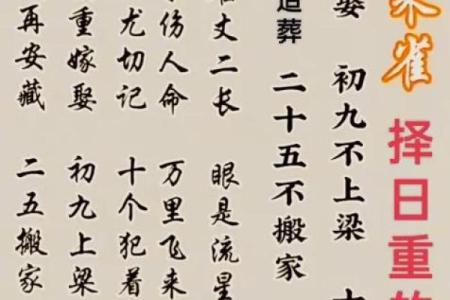 朱雀 择日重的
娶 初九不上梁 十
造葬 二十五不搬家
丈二长 眼是流星
伤人命 万里飞来
尤切记 十个犯着
重嫁娶 初九上梁
再安藏 二五搬家